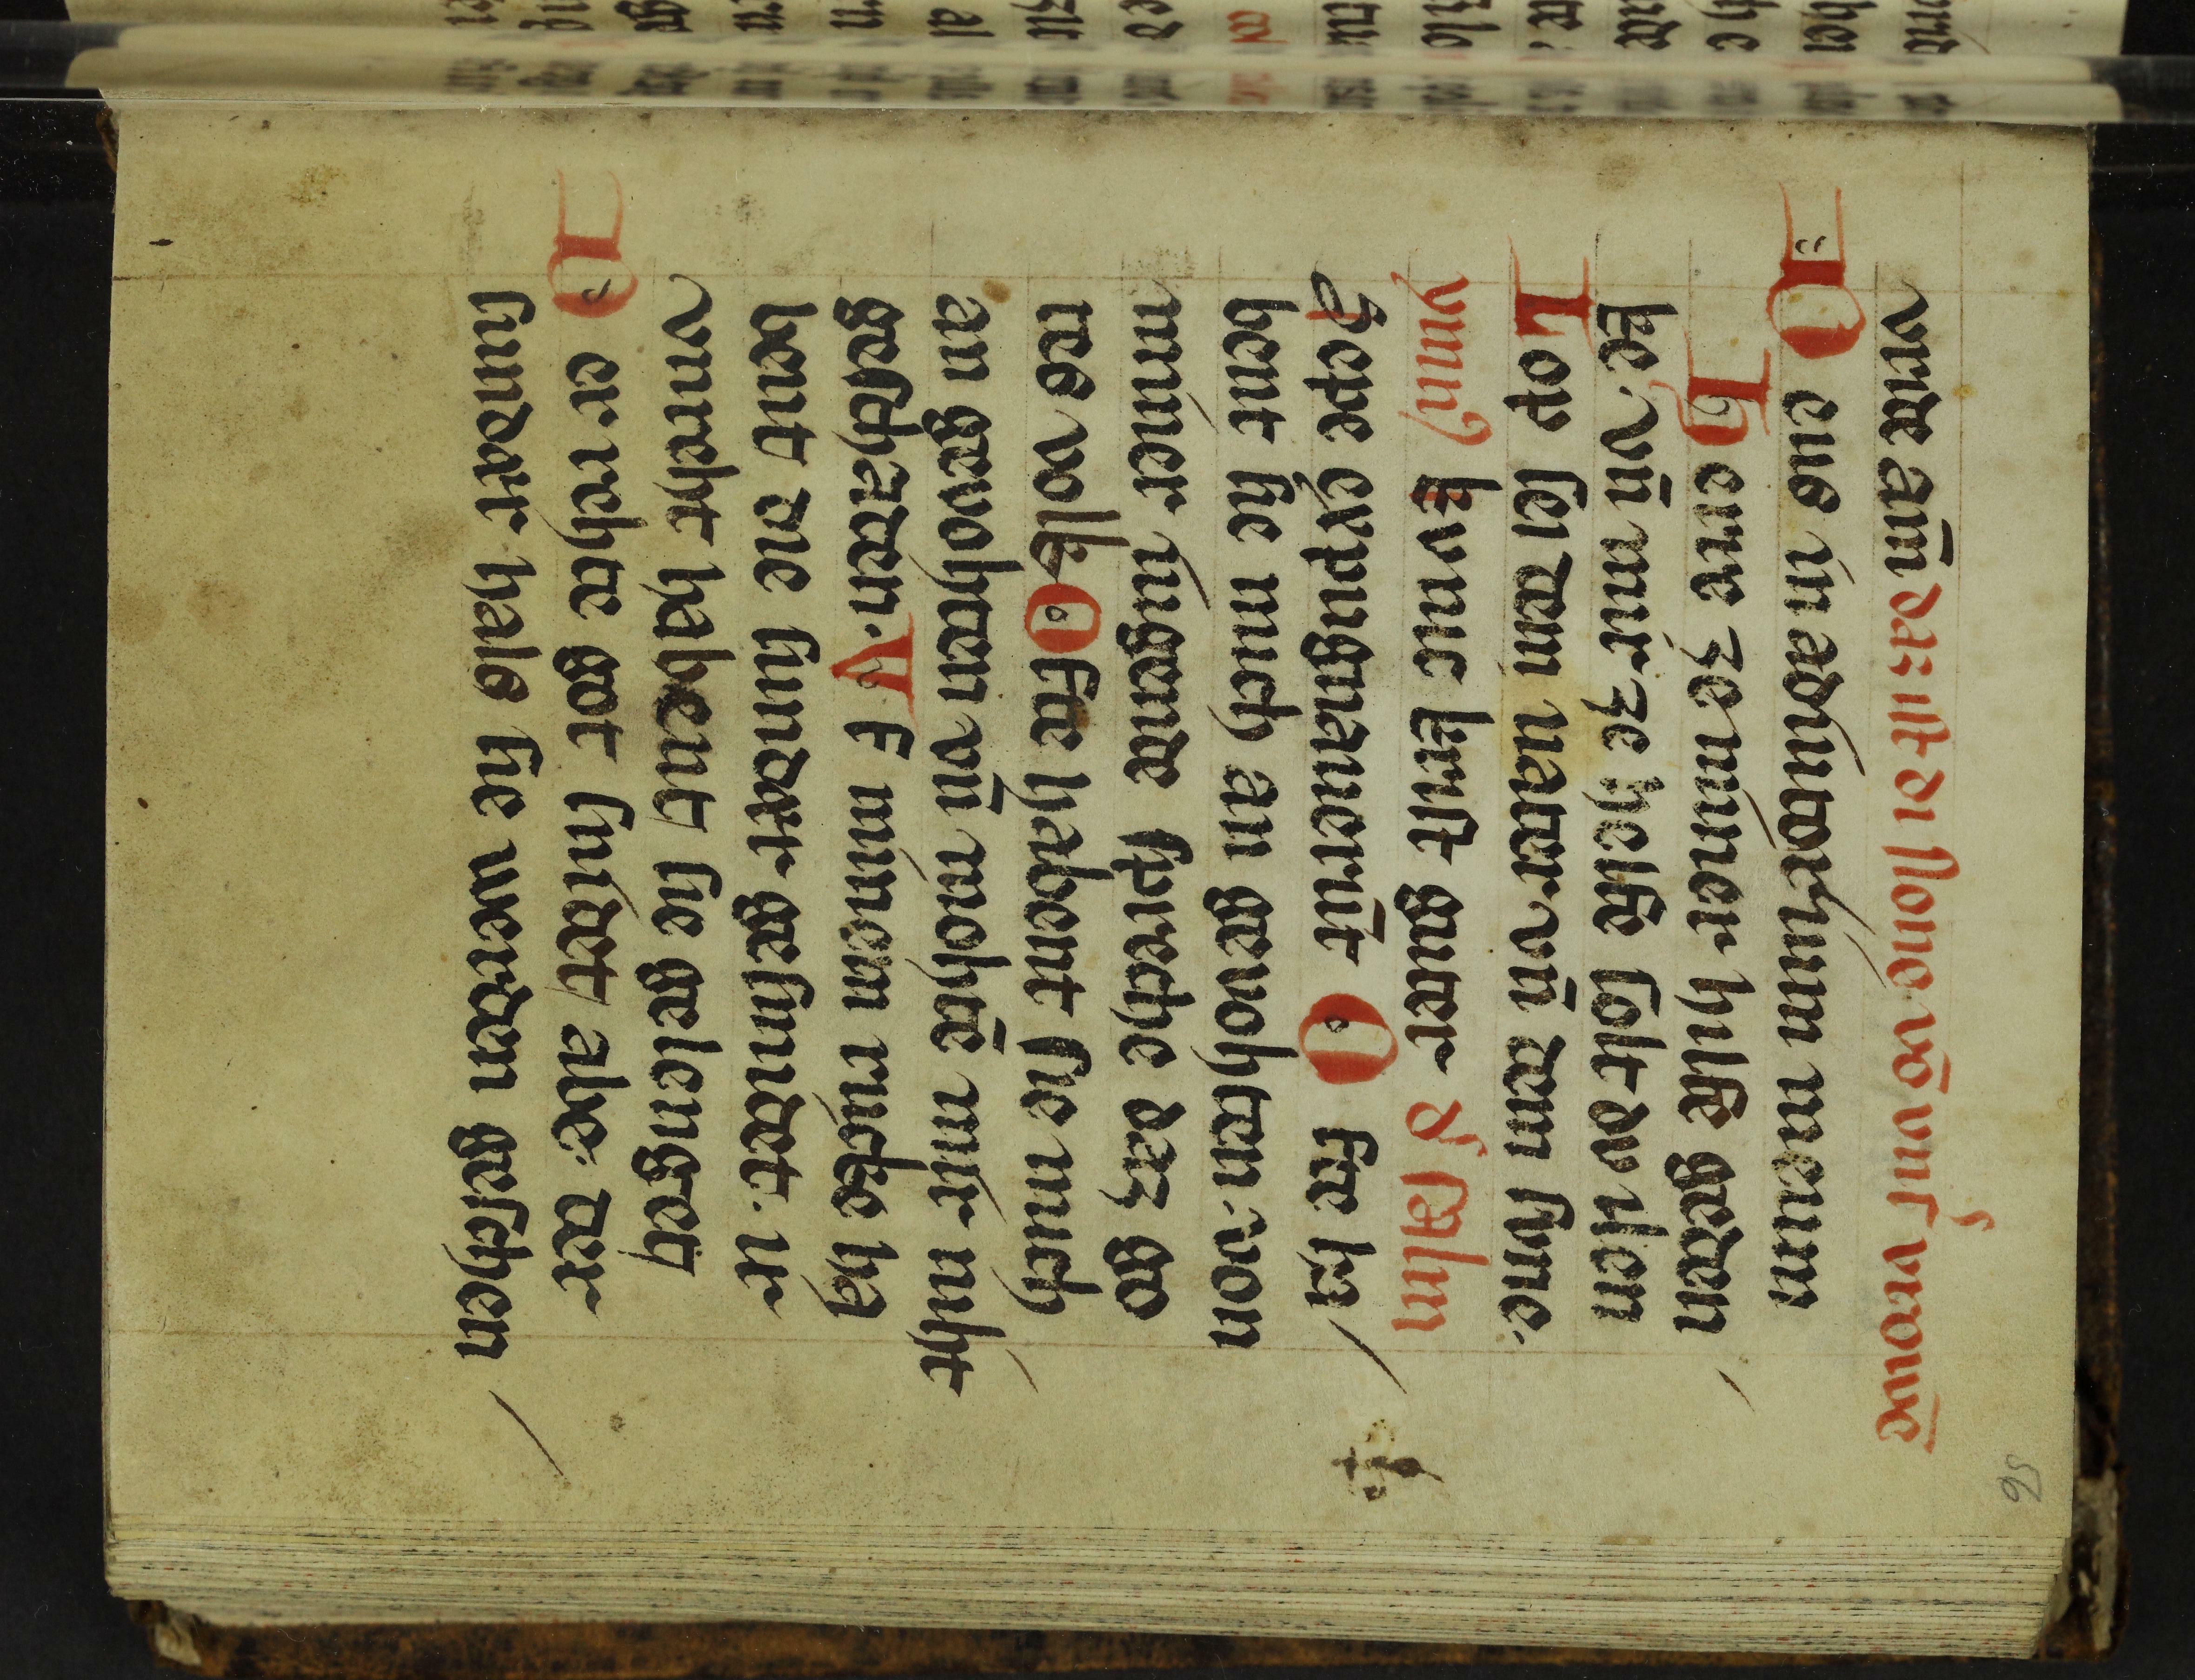 vnde am̄ daz ist di ssone vō vnsˢ vrowē
Deus in adiutorium meum
Herre ze miner hilfe geden
ke. vn̄ mir ze helfe solt du ilen
Lop sei dem vater vn̄ dem sune.
ymn kvme krist guter d' salm
Sepe expugnauerūt Ofte ha
bent sie mich an gevohten. von
miner iugende spreche daz go
tes volk Ofte habent sie mich
an gevohten vn̄ mohte mir niht
geschaden. Vf minem rucke ha
bent die sundaer gesmidet. ir
vnreht habent sie gelenget
Der rehte got snidet abe. der
sundaer hals sie werden geschen
95